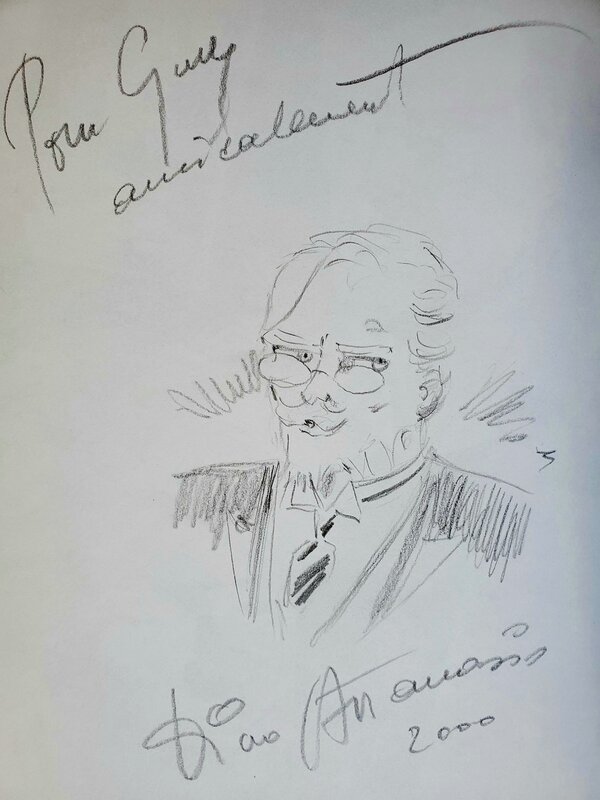 Pour Guy
amicalement
Dino Attanasio
2000